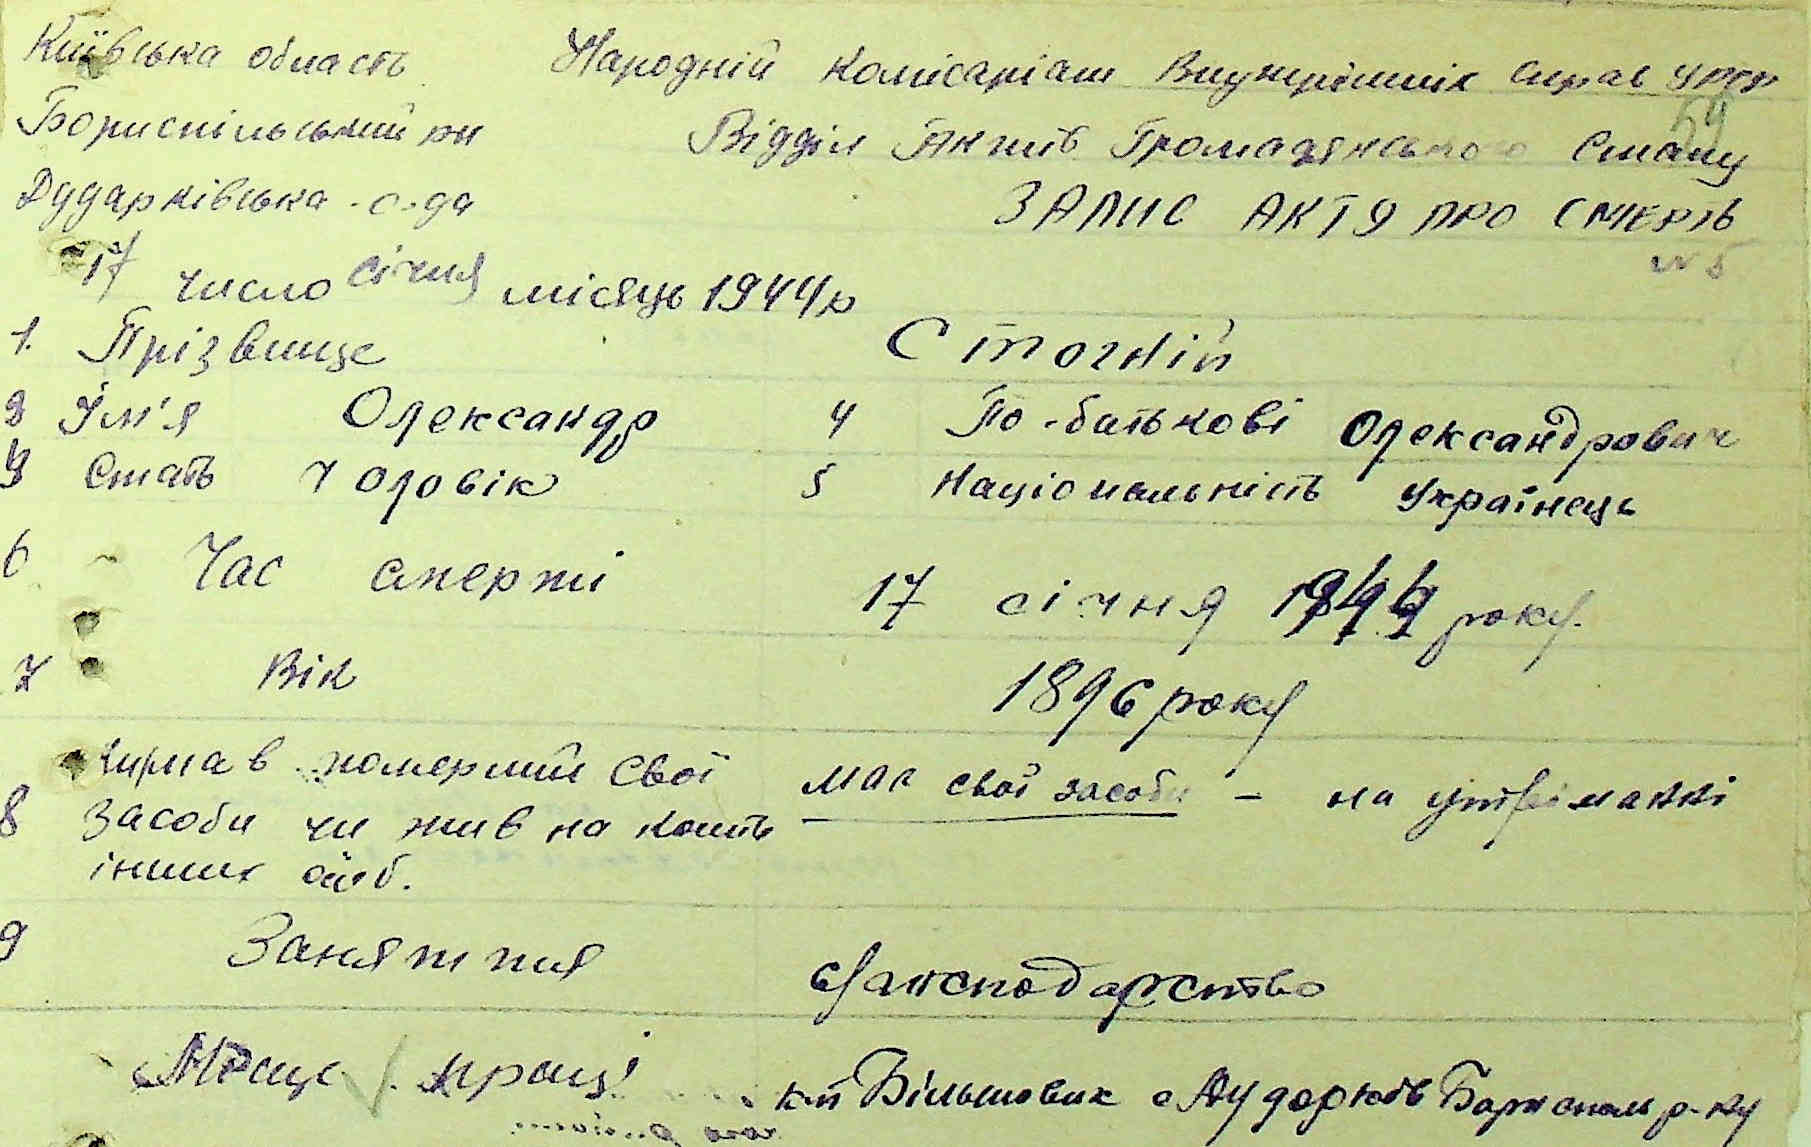 Київська область Народній Комісаріат Внутрішніх Справ УРСР
59
Бориспільський рн Відділ Актів Громадянського Стану
Дударківська с-да ЗАПИС АКТУ ПРО СМЕРТЬ
№ 5
17 число січня місяць 1944 р
1. Прізвище Стогній
2 Ім'я Олександр 4 По-батькові Олександрович
3 Стать Чоловік 5 Національність Українець
6 Час смерті 17 січня 1944 року.
7 Вік 1896 року
8 Чи мав померший свої мав свої засоби - на утриманні
засоби чи жив на кошти
інших осіб.
9 Заняття сг господарство
Місце праці к-п Більшовик с Дударків Бориспольр-ну